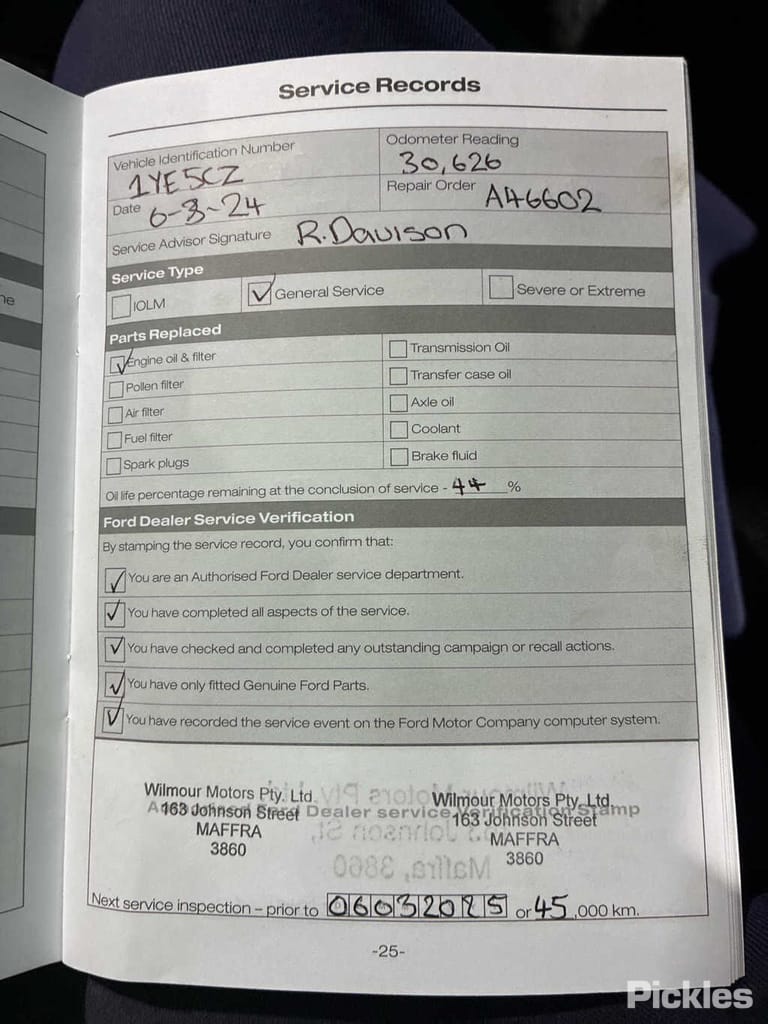 Service Records
Vehicle Identification Number
1YE5CZ
Odometer Reading
30,626
Date 6-3-24
Repair Order A46602
Service Advisor Signature R.Davison
Service Type
IOLM
General Service
Severe or Extreme
Parts Replaced
Engine oil & filter
Transmission Oil
Pollen filter
Transfer case oil
Air filter
Axle oil
Fuel filter
Coolant
Spark plugs
Brake fluid
Oil life percentage remaining at the conclusion of service - 44 %
Ford Dealer Service Verification
By stamping the service record, you confirm that:
You are an Authorised Ford Dealer service department.
You have completed all aspects of the service.
You have checked and completed any outstanding campaign or recall actions.
You have only fitted Genuine Ford Parts.
You have recorded the service event on the Ford Motor Company computer system.
Authorised Ford Dealer service Verification Stamp
Wilmour Motors Pty. Ltd.
163 Johnson Street
MAFFRA
3860
Wilmour Motors Pty. Ltd.
163 Johnson Street
MAFFRA
3860
Next service inspection – prior to 06032025 or 45,000 km.
-25-
Pickles